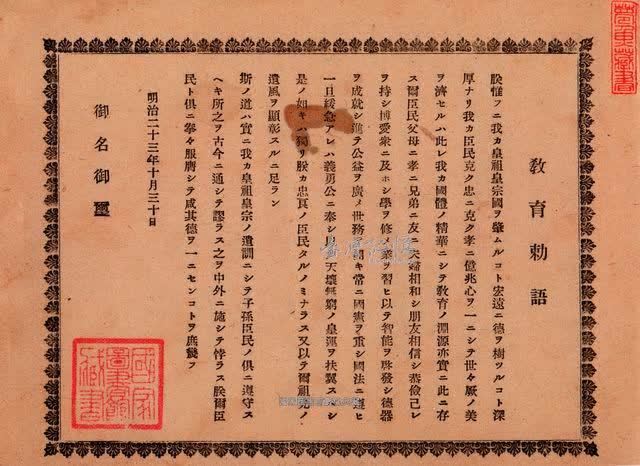 教育勅語
朕惟フニ我カ皇祖皇宗國ヲ肇ムルコト宏遠ニ德ヲ樹ツルコト深
厚ナリ我カ臣民克ク忠ニ克ク孝ニ億兆心ヲ一ニシテ世々厥ノ美
ヲ濟セルハ此レ我カ國體ノ精華ニシテ教育ノ淵源亦實ニ此ニ存
ス爾臣民父母ニ孝ニ兄弟ニ友ニ夫婦相和シ朋友相信シ恭儉己レ
ヲ持シ博愛衆ニ及ホシ學ヲ修メ業ヲ習ヒ以テ智能ヲ啓發シ德器
ヲ成就シ進テ公益ヲ廣メ世務ヲ開キ常ニ國憲ヲ重シ國法ニ遵ヒ
一旦緩急アレハ義勇公ニ奉シ以テ天壤無窮ノ皇運ヲ扶翼スヘシ
是ノ如キハ獨リ朕カ忠良ノ臣民タルノミナラス又以テ爾祖先ノ
遺風ヲ顯彰スルニ足ラン
斯ノ道ハ實ニ我カ皇祖皇宗ノ遺訓ニシテ子孫臣民ノ俱ニ遵守ス
ヘキ所之ヲ古今ニ通シテ謬ラス之ヲ中外ニ施シテ悖ラス朕爾臣
民ト俱ニ拳々服膺シテ咸其德ヲ一ニセンコトヲ庶幾フ
明治二十三年十月三十日
御名御璽
國家圖書館藏書